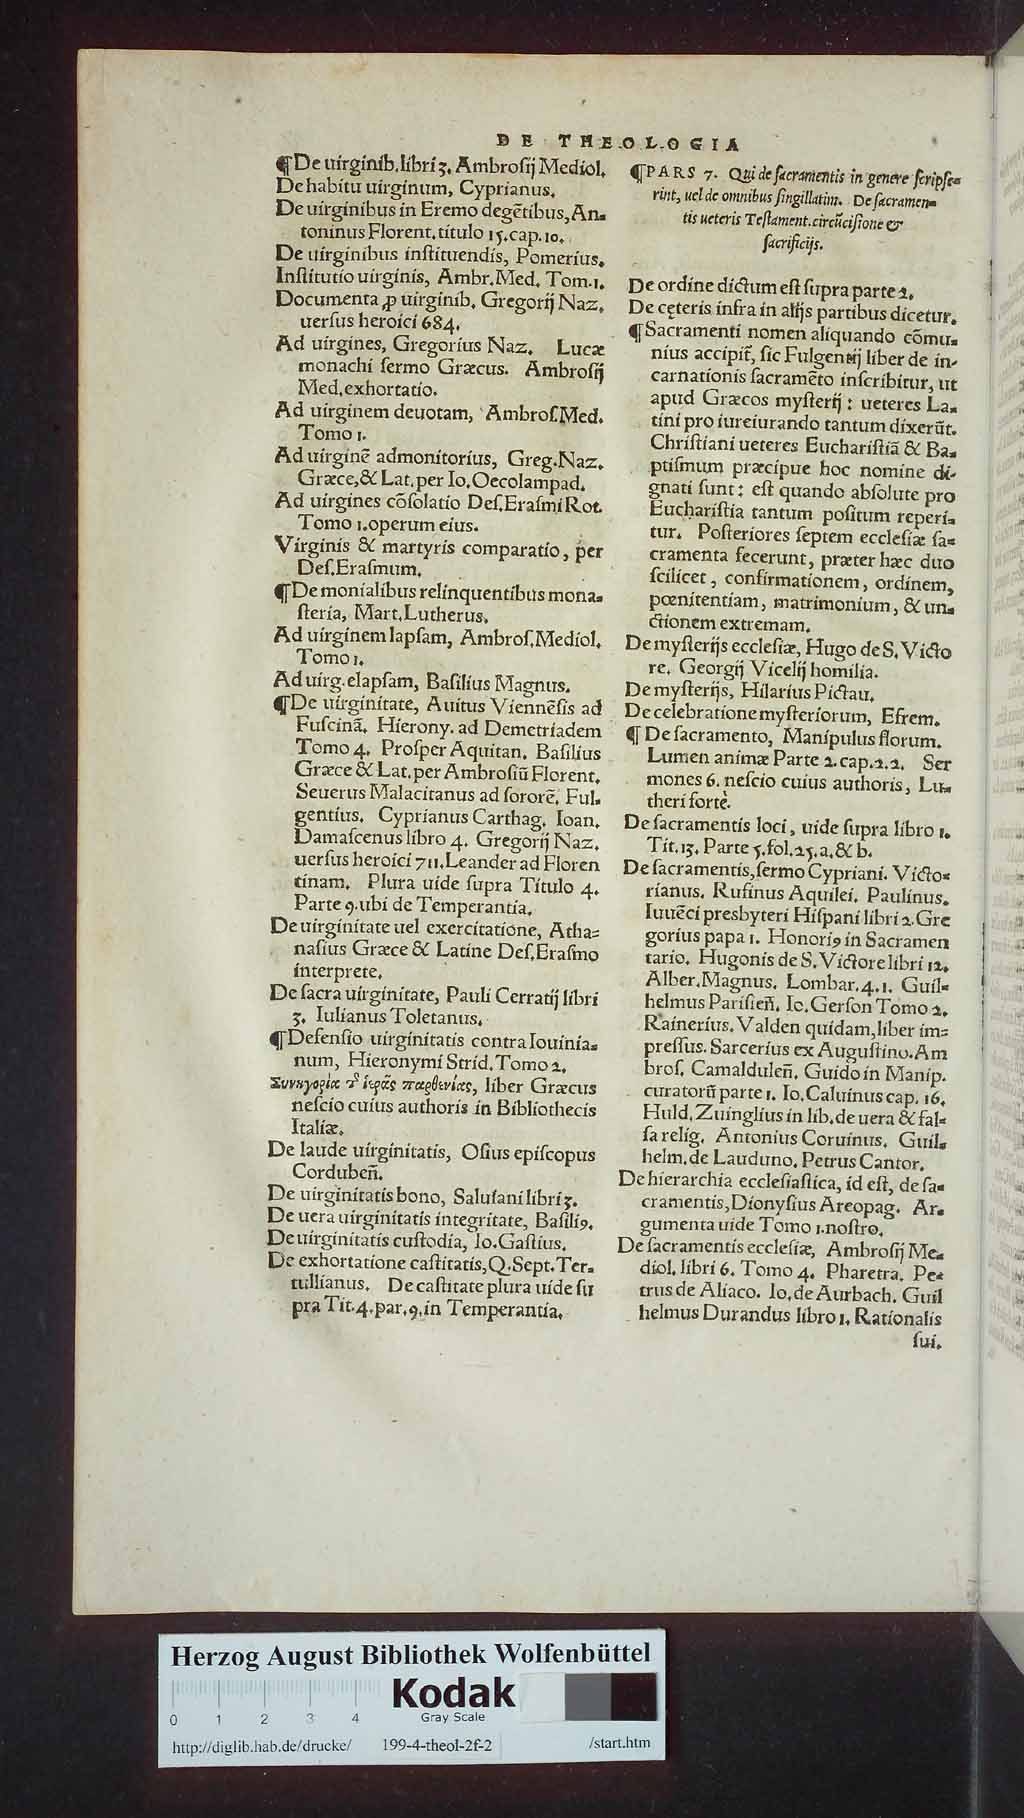 DE THEOLOGIA
¶De uirginib. libri 3. Ambrosij Mediol.
De habitu uirginum, Cyprianus.
De uirginibus in Eremo degẽtibus, An-
toninus Florent. titulo 15. cap. 10.
De uirginibus instituendis, Pomerius.
Institutio uirginis, Ambr. Med. Tom. 1.
Documenta ꝓ uirginib. Gregorij Naz.
uersus heroici 684.
Ad uirgines, Gregorius Naz. Lucæ
monachi sermo Græcus. Ambrosij
Med. exhortatio.
Ad uirginem deuotam, Ambros. Med.
Tomo 1.
Ad uirginẽ admonitorius, Greg. Naz.
Græce, & Lat. per Io. Oecolampad.
Ad uirgines cõsolatio Des. Erasmi Rot.
Tomo 1. operum eius.
Virginis & martyris comparatio, per
Des. Erasmum.
¶De monialibus relinquentibus mona-
steria, Mart. Lutherus.
Ad uirginem lapsam, Ambros. Mediol.
Tomo 1.
Ad uirg. elapsam, Basilius Magnus.
¶De uirginitate, Auitus Viennẽsis ad
Fuscinã. Hierony. ad Demetriadem
Tomo 4. Prosper Aquitan. Basilius
Græce & Lat. per Ambrosiũ Florent.
Seuerus Malacitanus ad sororẽ. Ful-
gentius. Cyprianus Carthag. Ioan.
Damascenus libro 4. Gregorij Naz.
uersus heroici 711. Leander ad Floren
tinam. Plura uide supra Titulo 4.
Parte 9. ubi de Temperantia.
De uirginitate uel exercitatione, Atha-
nasius Græce & Latine Des. Erasmo
interprete.
De sacra uirginitate, Pauli Cerratij libri
3. Iulianus Toletanus.
¶Defensio uirginitatis contra Iouinia-
num, Hieronymi Strid. Tomo 2.
Συνηγορία τ͂ ἱερᾶς παρθενίας, liber Græcus
nescio cuius authoris in Bibliothecis
Italiæ.
De laude uirginitatis, Osius episcopus
Cordubeñ.
De uirginitatis bono, Salusani libri 3.
De uera uirginitatis integritate, Basiliꝰ.
De uirginitatis custodia, Io. Gastius.
De exhortatione castitatis, Q. Sept. Ter-
tullianus. De castitate plura uide su
pra Tit. 4. par. 9. in Temperantia.
¶PARS 7. Qui de sacramentis in genere scripse-
rint, uel de omnibus singillatim. De sacramen-
tis ueteris Testament. circũcisione &
sacrificijs.
De ordine dictum est supra parte 2.
De cęteris infra in alijs partibus dicetur.
¶Sacramenti nomen aliquando cõmu-
nius accipit̃, sic Fulgentij liber de in-
carnationis sacramẽto inscribitur, ut
apud Græcos mysterij: ueteres La-
tini pro iureiurando tantum dixerũt.
Christiani ueteres Eucharistiã & Ba-
ptismum præcipue hoc nomine di-
gnati sunt: est quando absolute pro
Eucharistia tantum positum reperi-
tur. Posteriores septem ecclesiæ sa-
cramenta fecerunt, præter hæc duo
scilicet, confirmationem, ordinem,
pœnitentiam, matrimonium, & un-
ctionem extremam.
De mysterijs ecclesiæ, Hugo de S. Victo
re. Georgij Vicelij homilia.
De mysterijs, Hilarius Pictau.
De celebratione mysteriorum, Efrem.
¶ De sacramento, Manipulus florum.
Lumen animæ Parte 2. cap. 2.2. Ser
mones 6. nescio cuius authoris, Lu-
theri fortè.
De sacramentis loci, uide supra libro 1.
Tit. 13. Parte 5. fol. 25. a, & b.
De sacramentis, sermo Cypriani. Victo-
rianus. Rufinus Aquilei. Paulinus.
Iuuẽci presbyteri Hispani libri 2. Gre
gorius papa 1. Honoriꝰ in Sacramen
tario. Hugonis de S. Victore libri 12.
Alber. Magnus. Lombar. 4. 1. Guil-
helmus Parisieñ. Io. Gerson Tomo 2.
Rainerius. Valden quidam, liber im-
pressus. Sarcerius ex Augustino. Am
bros. Camalduleñ. Guido in Manip.
curatorũ parte 1. Io. Caluinus cap. 16.
Huld. Zuinglius in lib. de uera & fal-
sa relig. Antonius Coruinus. Guil-
helm. de Lauduno. Petrus Cantor.
De hierarchia ecclesiastica, id est, de sa-
cramentis, Dionysius Areopag. Ar-
gumenta uide Tomo 1. nostro.
De sacramentis ecclesiæ, Ambrosij Me-
diol. libri 6. Tomo 4. Pharetra. Pe-
trus de Aliaco. Io. de Aurbach. Guil
helmus Durandus libro 1. Rationalis
sui.
Herzog August Bibliothek Wolfenbüttel
Kodak
Gray Scale
0 1 2 3 4
http://diglib.hab.de/drucke/ 199-4-theol-2f-2 /start.htm